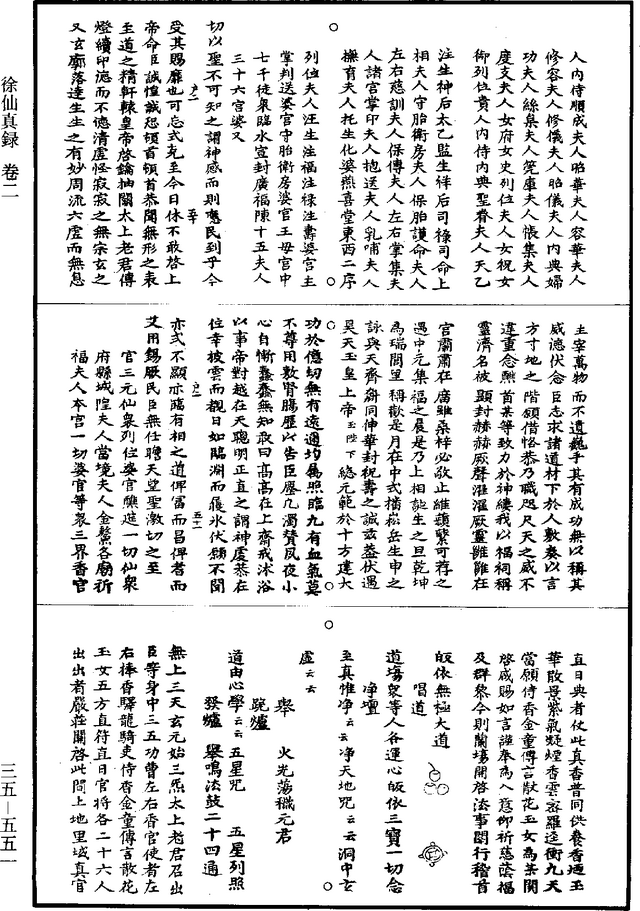 人內侍順成夫人昭華夫人容華夫人
修容夫人修儀夫人昭儀夫人內典婦
功夫人絲枲夫人筦庫夫人帳集夫人
度支夫人女府女史列位夫人女祝女
御列位貴人內侍內典聖眷夫人天乙
注生神后太乙監生祥后司祿司命上
相夫人守胎衛房夫人保胎護命夫人
左右慈訓夫人保傳夫人左右掌集夫
人諸宮掌印夫人抱送夫人乳哺夫人
撫育夫人托生化婆燕喜堂東西二序
列位夫人注生注福注祿注壽婆官主
掌判送婆官守胎衛房婆官王母宮中
七千徒衆臨水宣封廣福陳十五夫人
三十六宮婆又
切以聖不可知之謂神感而則應民到乎今
受其賜靡也可忘式克至今日休不敢啓上
帝命臣誠惶誠恐頓首頓首恭聞無形之表
至道之精軒轅皇帝啓鑰抽關太上老君傳
燈續印德而不德清虛怪寂寂之無宗玄之
又玄廓落達生生之有妙周流六虛而無息
主宰萬物而不遺巍乎其有成功無以稱其
威德伏念臣志求諸道材下於人數奏以言
方寸地之階願借恪恭乃職咫尺天之威不
違重念熙首某等致力於神縷我以福祠稱
靈濟名被顯封赫赫厥聲濯濯厥靈雝雝在
宮肅肅在廟雖桑梓必敬止維蘋蘩可荐之
遇中元集福之晨是乃上相誕生之旦乾坤
爲瑞閭里稱歡是月在中式橋崧岳生申之
詠與天齊筭同伸華封祝壽之誠玆蓋伏遇
昊天玉皇上帝玉陛下總元範於十方建大
功於億劫無有遠邇均屬照臨九有血氣莫
不尊用敷腎腸歷以告臣歷几濁賛夙夜小
心自慚蠢蠢無知敢曰高高在上齋戒沐浴
以事帝對越在天聰明正直之謂神虔恭在
位幸披雲而覩日如臨淵而履氷伏願不聞
亦式不顯亦臨有相之道俾富而昌俾耆而
艾用錫厥民臣無任瞻天望聖激切之至
官三元仙衆列位婆官醮筵一切仙衆
府縣城隍夫人當境夫人金鰲各廟祈
福夫人本宮一切婆官等衆三界香官
直日典者仗此真香普同供養香煙玉
華散景紫氣凝煙香雲密羅逕衝九天
當願侍香金童傳言獻花玉女爲某聞
啓咸賜如言謹奉爲入意仰祈慈蔭福
及群黎今則蘭塲開啓法事關行稽首
皈依無極大道
唱道
道塲衆等人各運心皈依三寶一切念
淨壇
至真惟淨云云淨天地咒云云洞中玄
虛云云
舉　火光蕩穢元君
跪爐
道由心學云云五星咒　五星列照
發爐　舉鳴法鼓二十四通
無上三天玄元始三炁太上老君召出
臣等身中三五功曹左右香官使者左
右捧香驛龍騎吏侍香金童傳言散花
玉女五方直符直日官將各二十六人
出出者嚴莊關啓此間土地里域真官
徐仙真録　卷二
三五—五五一